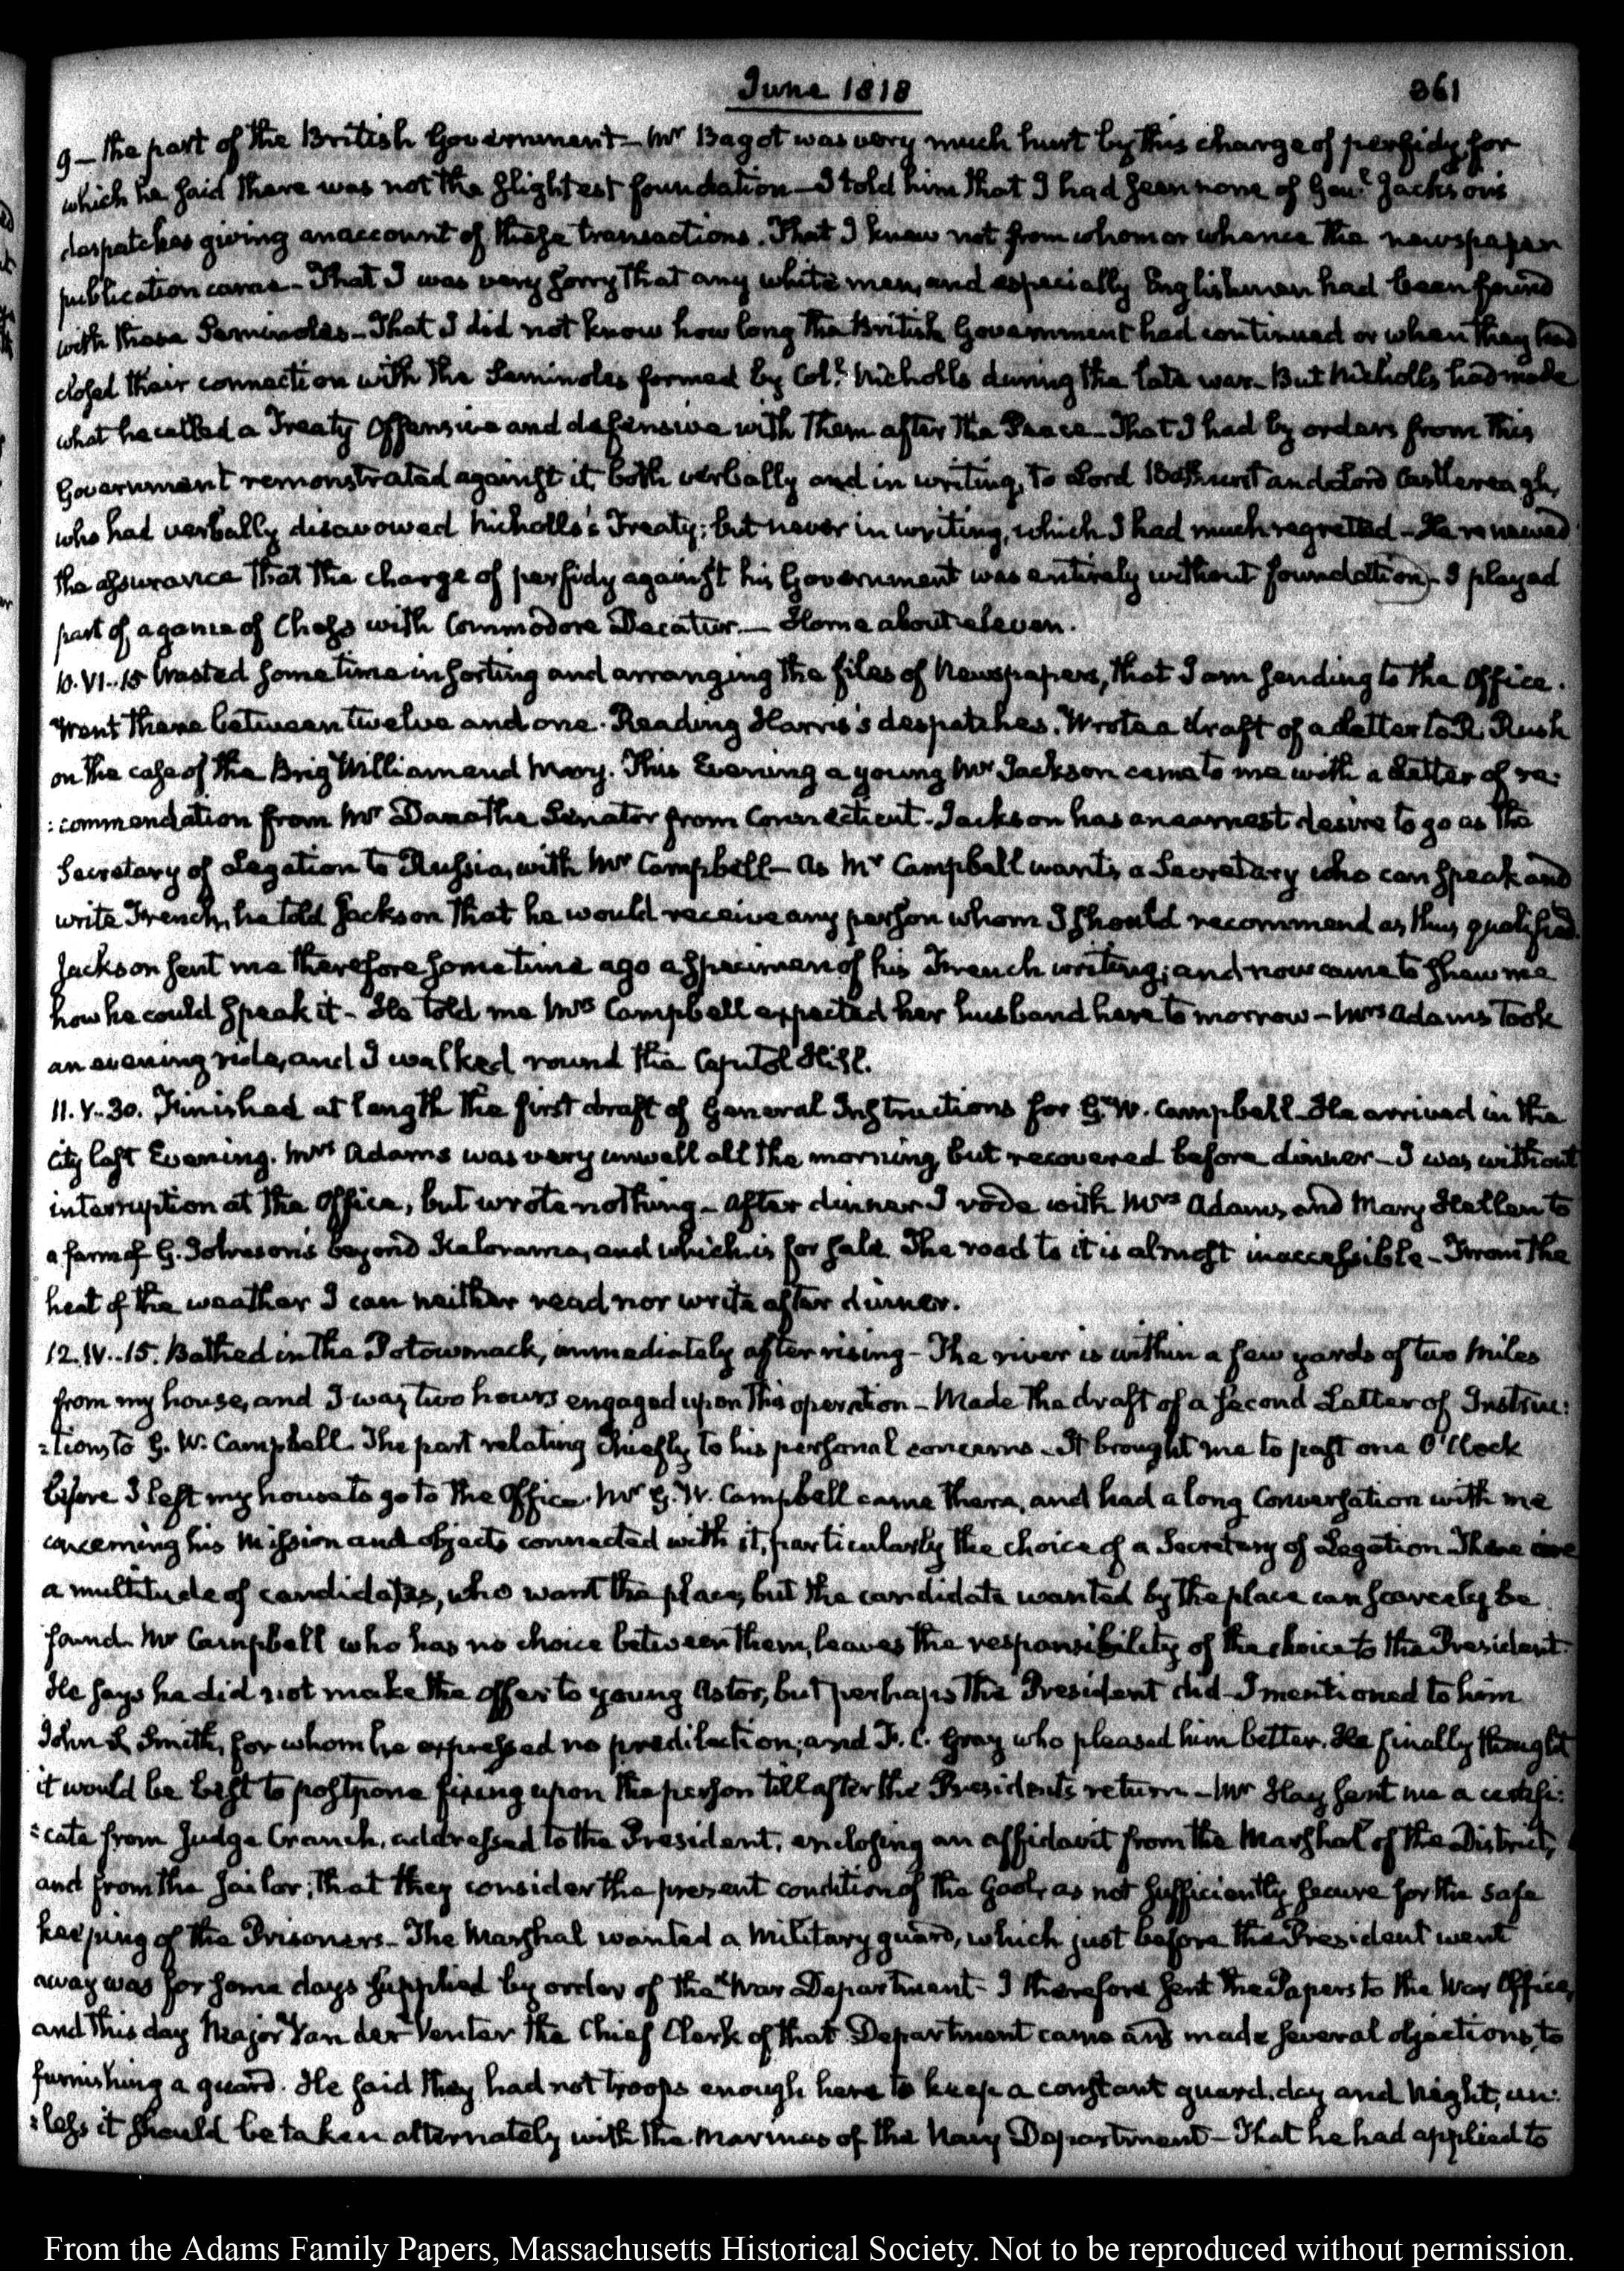 June 1818
361
9 — the part of the British Government — Mr Bagot was very much hurt by this charge of perfidy, for
which he said there was not the slightest foundation — I told him that I had seen none of Genl. Jackson's
despatches giving an account of these transactions. That I knew not from whom or whence the newspaper
publication came — That I was very sorry that any white men, and especially Englishmen had been found
with these Seminoles — That I did not know how long the British Government had continued or when they had
closed their connection with the Seminoles formed by Coll. Nicholls during the late war — But Nicholls had made
what he called a Treaty Offensive and defensive with them after the Peace — That I had by orders from this
Government remonstrated against it, both verbally and in writing, to Lord Bathurst and Lord Castlereagh,
who had verbally disavowed Nicholls's Treaty; but never in writing, which I had much regretted — He renewed
the assurance that the charge of perfidy against his Government was entirely without foundation — I played
part of a game of Chess with Commodore Decatur — Home about eleven.
10. VI..15 Wasted some time in sorting and arranging the files of Newspapers, that I am sending to the Office.
Went there between twelve and one. Reading Harris's despatches. Wrote a draft of a Letter to R. Rush
on the case of the Brig William and Mary. This Evening a young Mr Jackson came to me with a Letter of re:
:commendation from Mr Dana the Senator from Connecticut — Jackson has an earnest desire to go as the
Secretary of Legation to Russia, with Mr Campbell — As Mr Campbell wants a Secretary who can speak and
write French, he told Jackson that he would receive any person whom I should recommend as thus qualified.
Jackson sent me therefore some time ago a specimen of his French writing; and now came to shew me
how he could speak it — He told me Mrs Campbell expected her husband here to morrow — Mrs Adams took
an evening ride, and I walked round the Capitol Hill.
11. V..30. Finished at length the first draft of General Instructions for G. W. Campbell — He arrived in the
City last Evening. Mrs Adams was very unwell all the morning, but recovered before dinner — I was without
interruption at the Office, but wrote nothing — After dinner I rode with Mrs Adams, and Mary Hellen to
a farm of G. Johnson's beyond Kalorama, and which is for sale. The road to it is almost inaccessible — From the
heat of the weather I can neither read nor write after dinner.
12. IV..15. Bathed in the Potowmack, immediately after rising — The river is within a few yards of two Miles
from my house, and I was two hours engaged upon this operation — Made the draft of a second Letter of Instruc:
:tions to G. W. Campbell. The part relating chiefly to his personal concerns — It brought me to past one O'Clock
before I left my house to go to the Office. Mr G. W. Campbell came there, and had a long Conversation with me
concerning his Mission and objects connected with it, particularly the choice of a Secretary of Legation. There are
a multitude of candidates, who want the place, but the candidate wanted by the place can scarcely be
found. Mr Campbell who has no choice between them, leaves the responsibility of the choice to the President.
He says he did not make the offer to young Astor, but perhaps the President did — I mentioned to him
John S. Smith, for whom he expressed no predilection; and F. C. Gray who pleased him better. He finally thought
it would be best to postpone fixing upon the person till after the President's return — Mr Hay sent me a certifi:
:cate from Judge Cranch, addressed to the President, enclosing an affidavit from the Marshal of the District,
and from the Jailor; that they consider the present condition of the Gaol, as not sufficiently secure for the safe
keeping of the Prisoners — The Marshal wanted a Military guard, which just before the President went
away was for some days supplied by order of the War Department — I therefore sent the Papers to the War Office,
and this day Major Van der Venter the Chief Clerk of that Department came and made several objections, to
furnishing a guard. He said they had not troops enough here to keep a constant guard, day and Night, un:
:less it should be taken alternately with the Marines of the Navy Department — That he had applied to
From the Adams Family Papers, Massachusetts Historical Society. Not to be reproduced without permission.